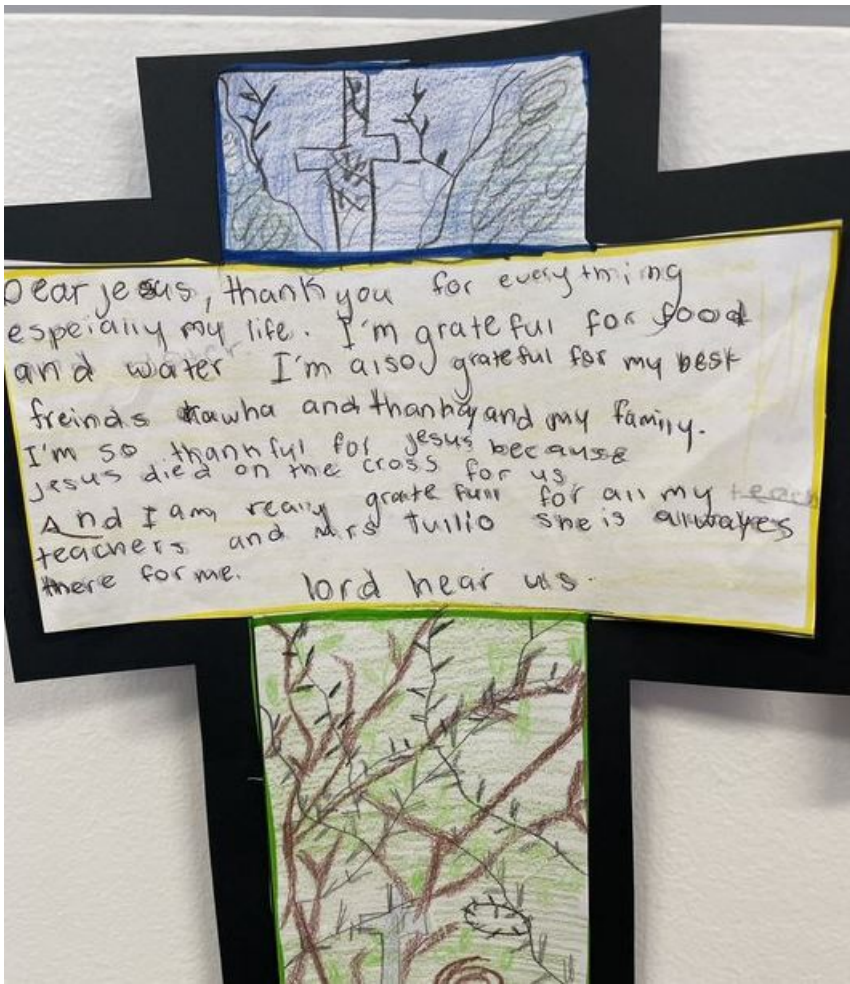 Dear jesus, thank you for everything
espeially my life. I'm grateful for food
and water I'm also grateful for my best
freinds and and my family.
I'm so thankful for jesus because
jesus died on the cross for us
And I am really grate full for all my
teachers and Mrs Tullio she is
there for me. lord hear us.